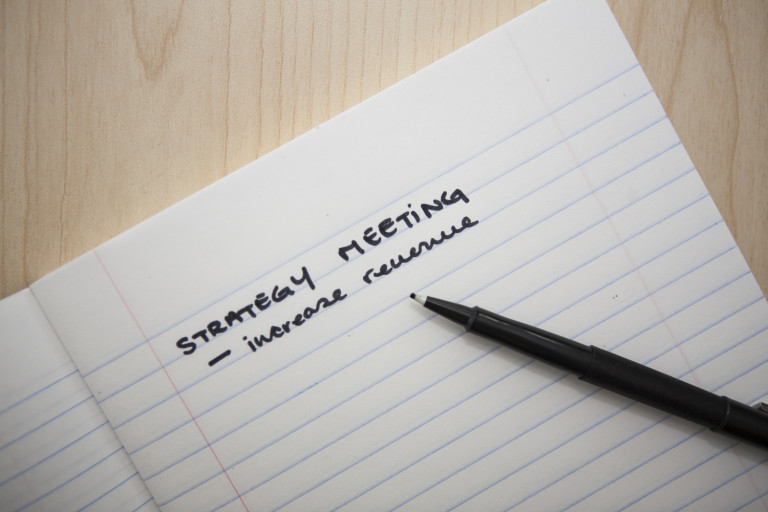 STRATEGY MEETING
– increase revenue